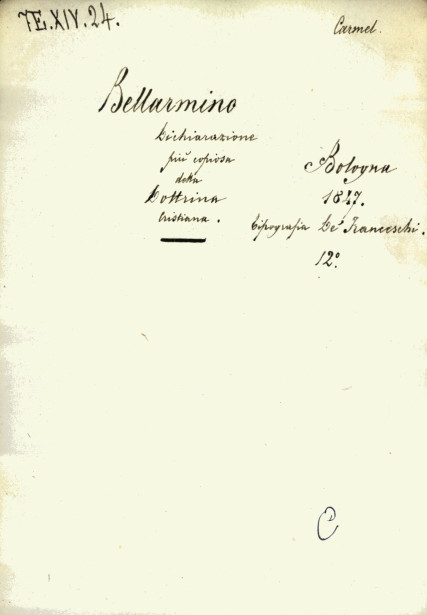 7E.XIV.24.
Carmel.
Bellarmino
Dichiarazione
più copiosa
della
Dottrina
Cristiana.
Bologna
1847.
Tipografia De' Franceschi.
12°.
C